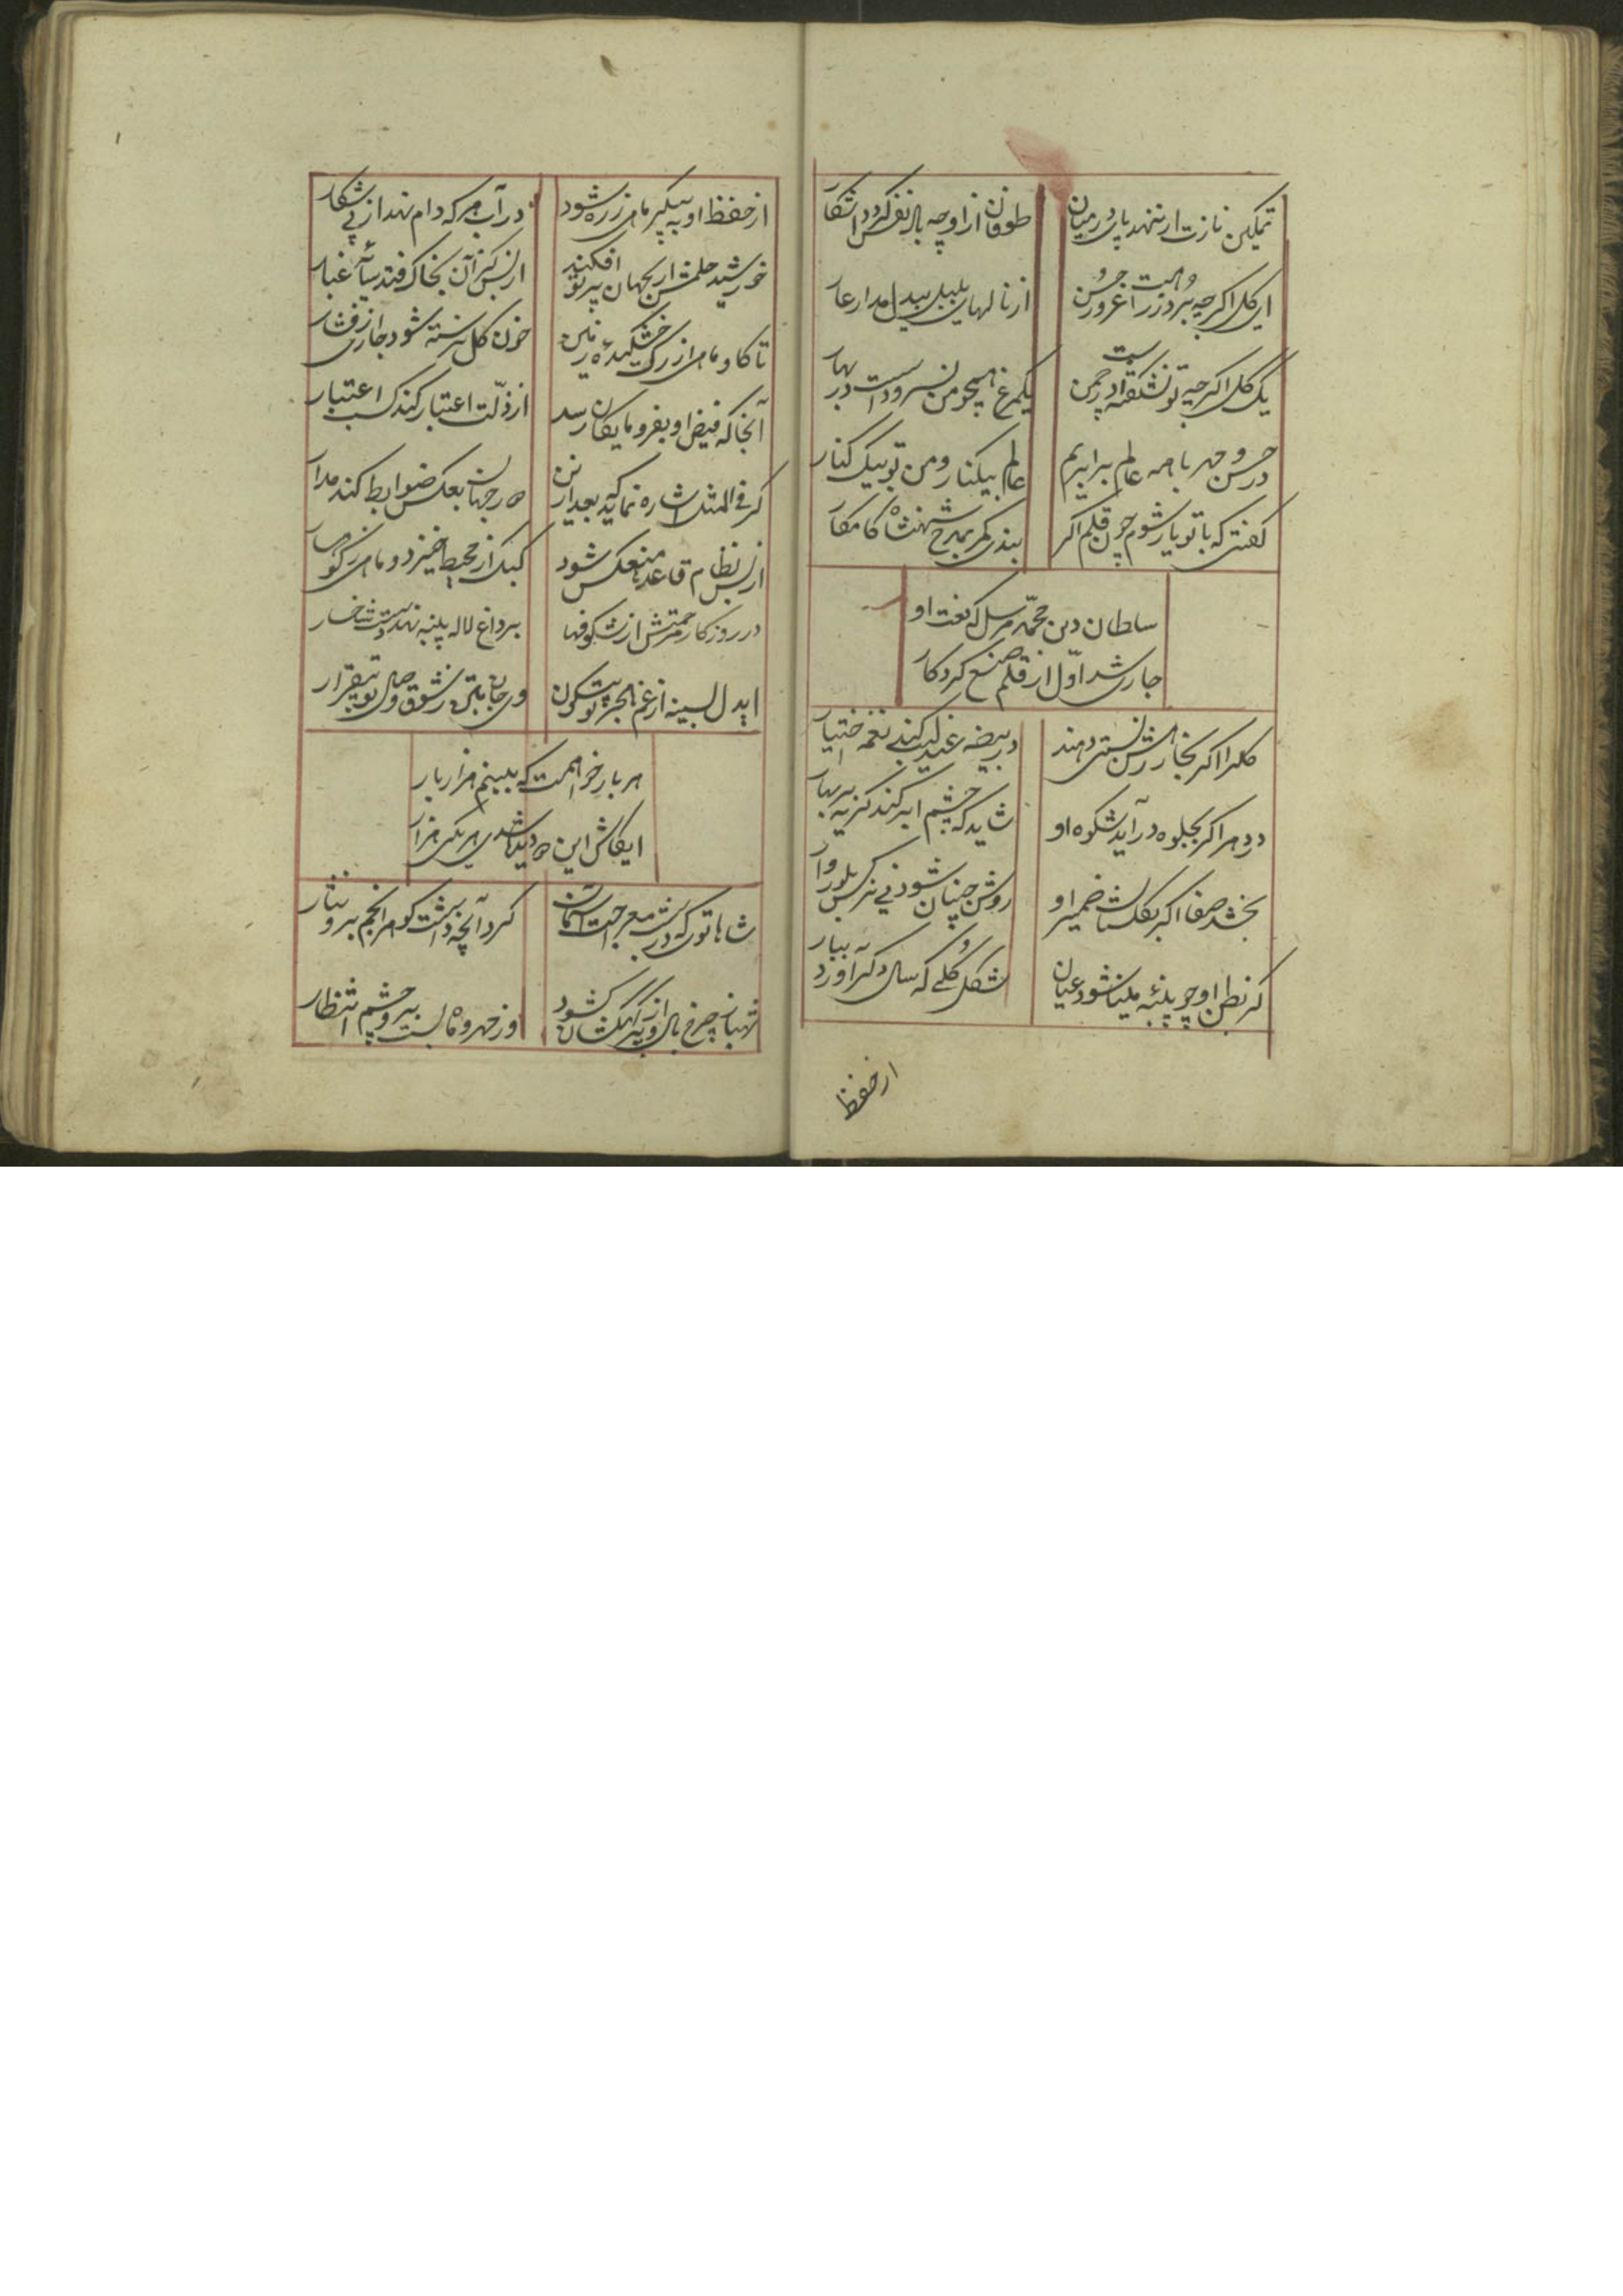 تمکین نازت ار ننهد پای در میان
طوفان از او چه بال نفس کردد اشکار
ای کل اکرچه برد ز راهت غرور حسن
از نالهای بلبل بیدل مدار عار
یک کل اکر چه تو نشکفته است در چمن
یکمرغ همچو من نسروده است در بهار
در حسن و مهر با همه عالم برابریم
عالم بیکنار و من تو بیک کنار
کفتی که با تو یار شوم چون قلم اکر
بندی کمر بمدح شهنشاه کامکار
سلطان دین محمد مرسل که نعت او
جاری شد اول از قلم صنع کردکار
کلرا اکر بخار رهش نسبتی دهند
در بیضه عندلیب کند نغمه اختیار
در هر اکر بجلوه در آید شکوه او
شاید که چشم ابر کند کریه بر بهار
بخشد صفا اکر بکلستان ضمیر او
روشن چنان شود نی نرکس بلوروار
کر نطق او چو پنبه مینا شود عیان
شکل کلی که سال دکر آورد ببار
از حفظ
از حفظ او به پیکر ماهی زره شود
در آب هر که دام نهد از پی شکار
خورشید حلمش ار بجهان پرتو افکند
از بس کران بخاک فتد سایهٔ غبار
تا کاو ماهی از رک خشکیدهٔ زمین
خون کل نرسته شود جاری از فشار
آنجا که فیض او بفرومایکان رسد
از ذلت اعتبار کند کسب اعتبار
کر فی المثل اشاره نماید که بعد ازین
در جهان بعکس ضوابط کند مدار
از بس نظام قاعدها منعکس شود
کبک از محیط خیزد و ماهی ز کوهسار
در روزکار رحمتش از شکوفها
بر داغ لاله پنبه نهد دست شاخسار
ایدل بسینه از غم هجر تو بیسکون
وی جان بتن ز شوق وصال تو بیقرار
هر بار خواهمت که ببینم هزار بار
ایکاش این دو دیده شدی هر یکی هزار
شاها توی که در شب معراجت آسمان
کرد آنچه داشت کوهر انجم برو نثار
تنها نه چرخ بال و پر از کهکشان کشود
وز مهر و ماه بست برو چشم انتظار